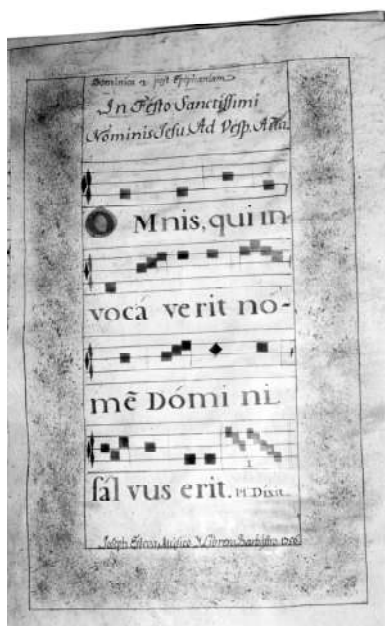 Dominica 2. post Epiphaniam
In Festo Sanctissimi
Nominis Jesu Ad Vesp. Ana.
OMnis, qui in
vocá verit nó-
mẽ Dómi ni
sál vus erit. Ps. Dixit.
Joseph Músico Y Librero 1756